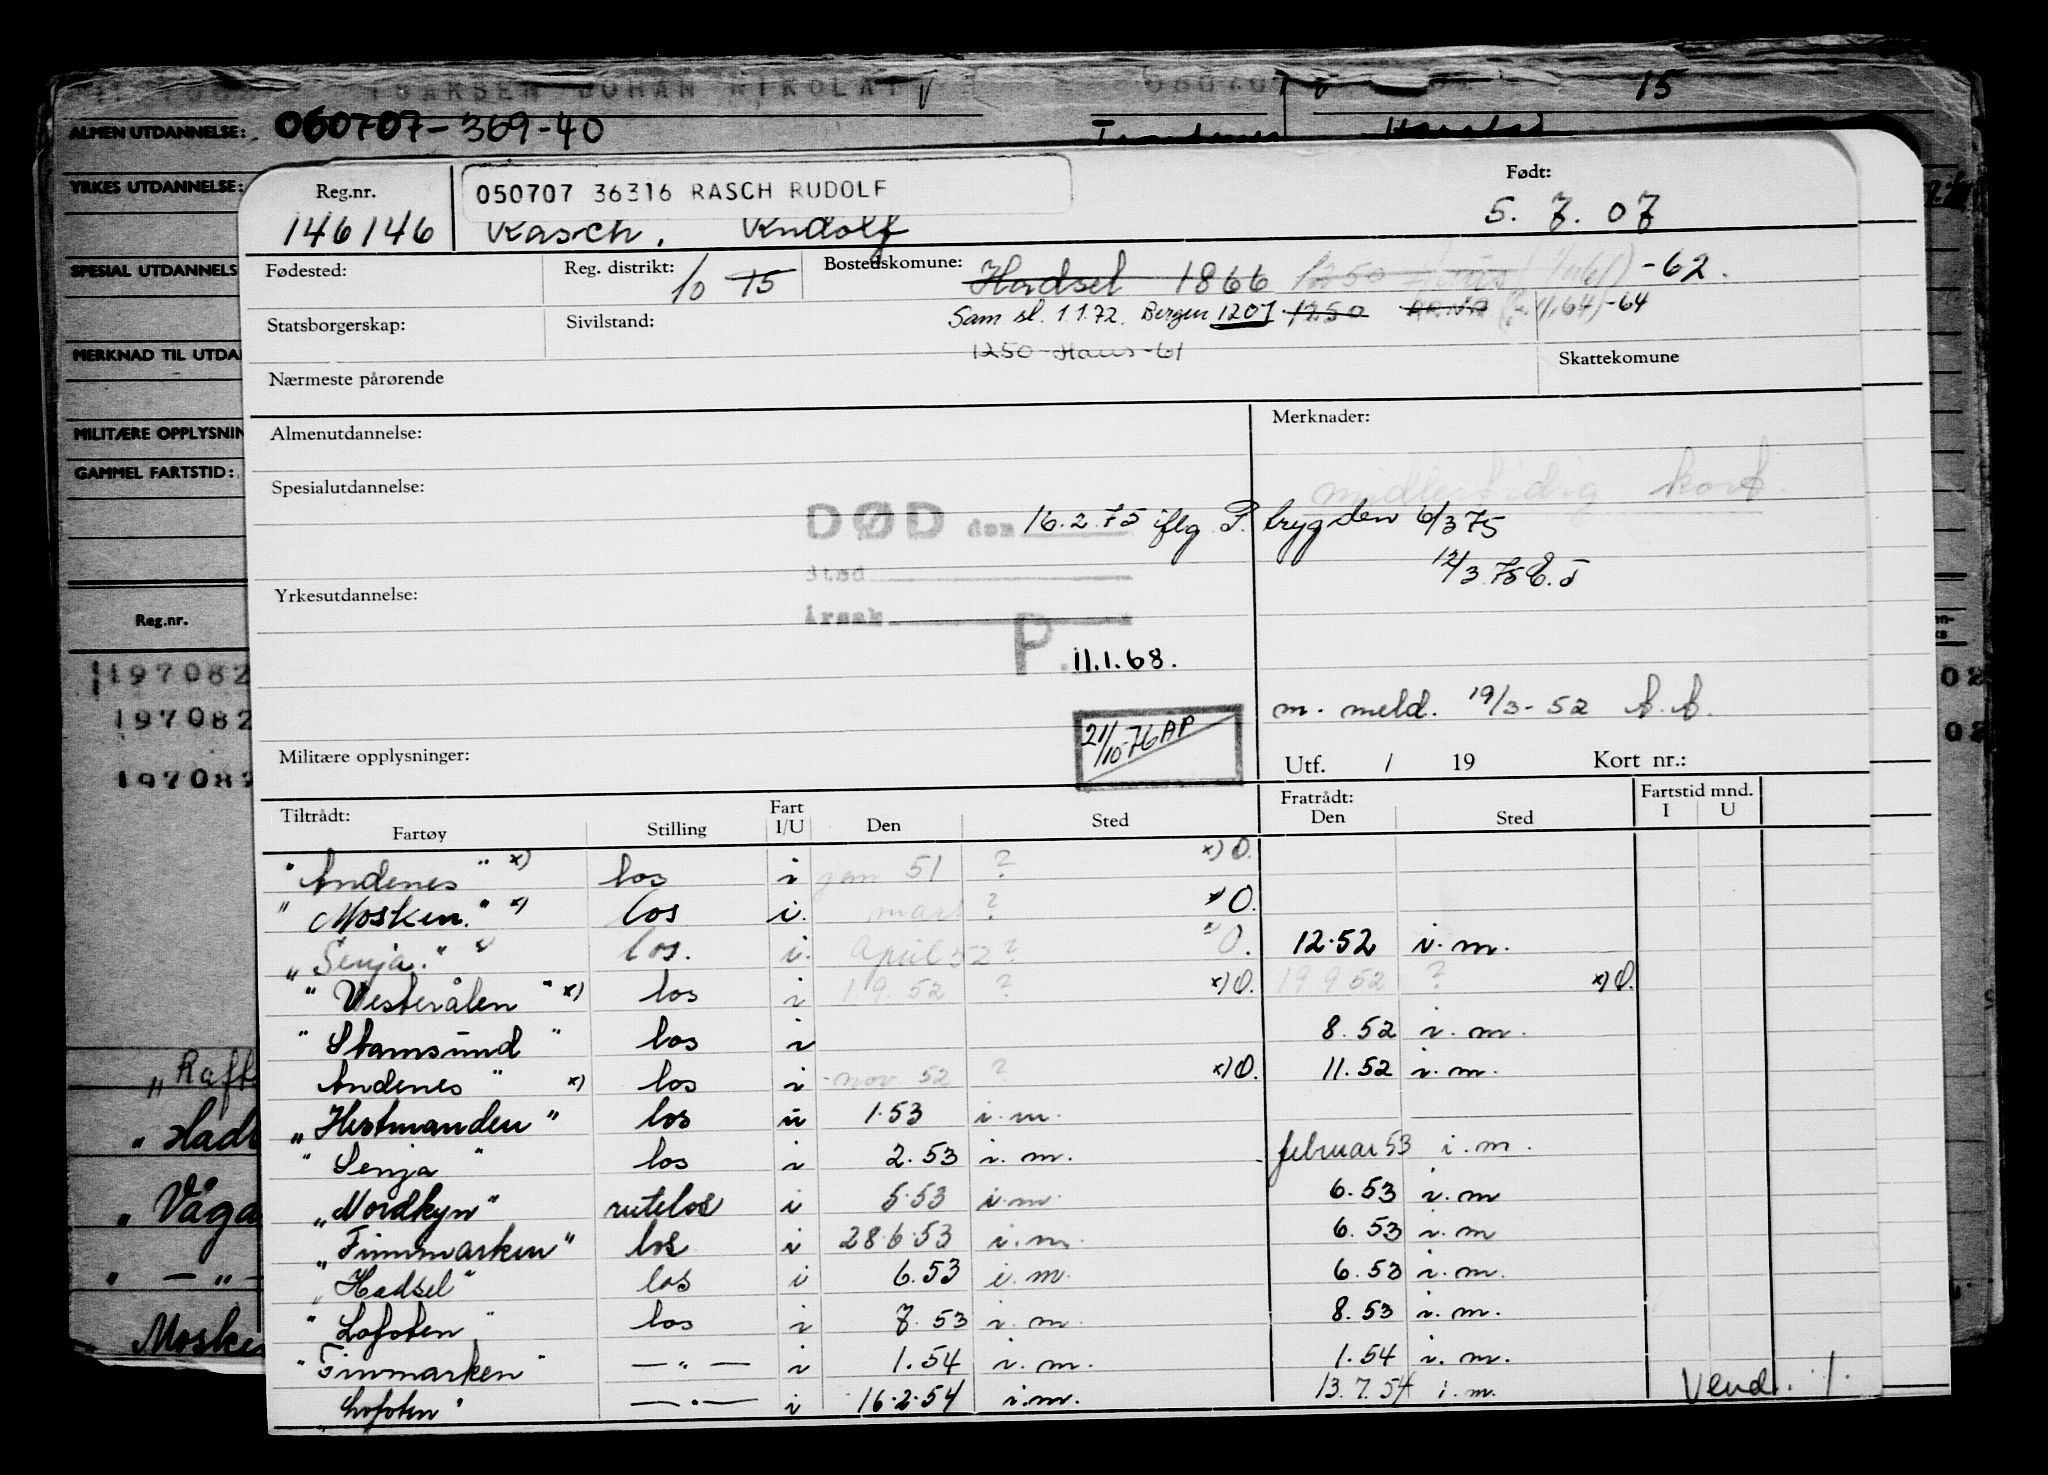 15
ALMEN UTDANNELSE: 060707-369-40
YRKES UTDANNELSE:
SPESIAL UTDANNELS
MERKNAD TIL UTDA
MILITÆRE OPPLYSNIN
GAMMEL FARTSTID:
Reg.nr.
197082
197082
197082
Reg.nr. 050707 36316 RASCH RUDOLF Født:
146146 Rasch, Rudolf 5. 7. 07
Fødested: Reg. distrikt: 10 15 Bostedskomune: Hadsel 1866 1250 -62.
Statsborgerskap: Sivilstand: Sam sl. 1.1.72. Bergen 1201 1250 ARNA (1/1.64)-64
1250 Haus -61
Nærmeste pårørende Skattekomune
Almenutdannelse: Merknader:
midlertidig kort
Spesialutdannelse:
DØD den 16.2.75 iflg. P. trygden 6/3 75
sted 12/3.75 E.T
Yrkesutdannelse:
årsak
P. 11.1.68.
m. meld. 19/3-52 A.A.
21/10-76 AP
Militære opplysninger: Utf. / 19 Kort nr.:
Tiltrådt: Fratrådt: Fartstid mnd.
Fartøy Stilling Fart I/U Den Sted Den Sted I U
"Andenes" x) los i jan 51 ? x) O.
"Mosken." x) los i. mars ? x) O.
"Senja." x) los. i. April 52 ? x) O. 12.52 i.m.
"Vesterålen" x) los i 1.9.52 ? x) O. 19 9 52 ? x) O.
"Stamsund" los i 8.52 i.m.
Andenes" x) los i nov 52 ? x) O. 11.52 i.m.
"Hestmanden" los i 1.53 i.m.
"Senja" los i 2.53 i.m. februar 53 i.m.
"Nordkyn" rutelos i 5.53 i.m. 6.53 i.m
"Finnmarken" los i 28.6.53 i.m. 6.53 i.m
"Hadsel" los i 6.53 i.m. 6.53 i.m.
"Lofoten" los i 7.53 i.m. 8.53 i.m.
"Finmarken" — " — i 1.54 i.m. 1.54 i.m.
Lofoten" — " — i 16.2.54 i.m. 13.7.54 i.m.
Vend. /.
"Rafts
"Hads
"Våga
" — " —
Moske